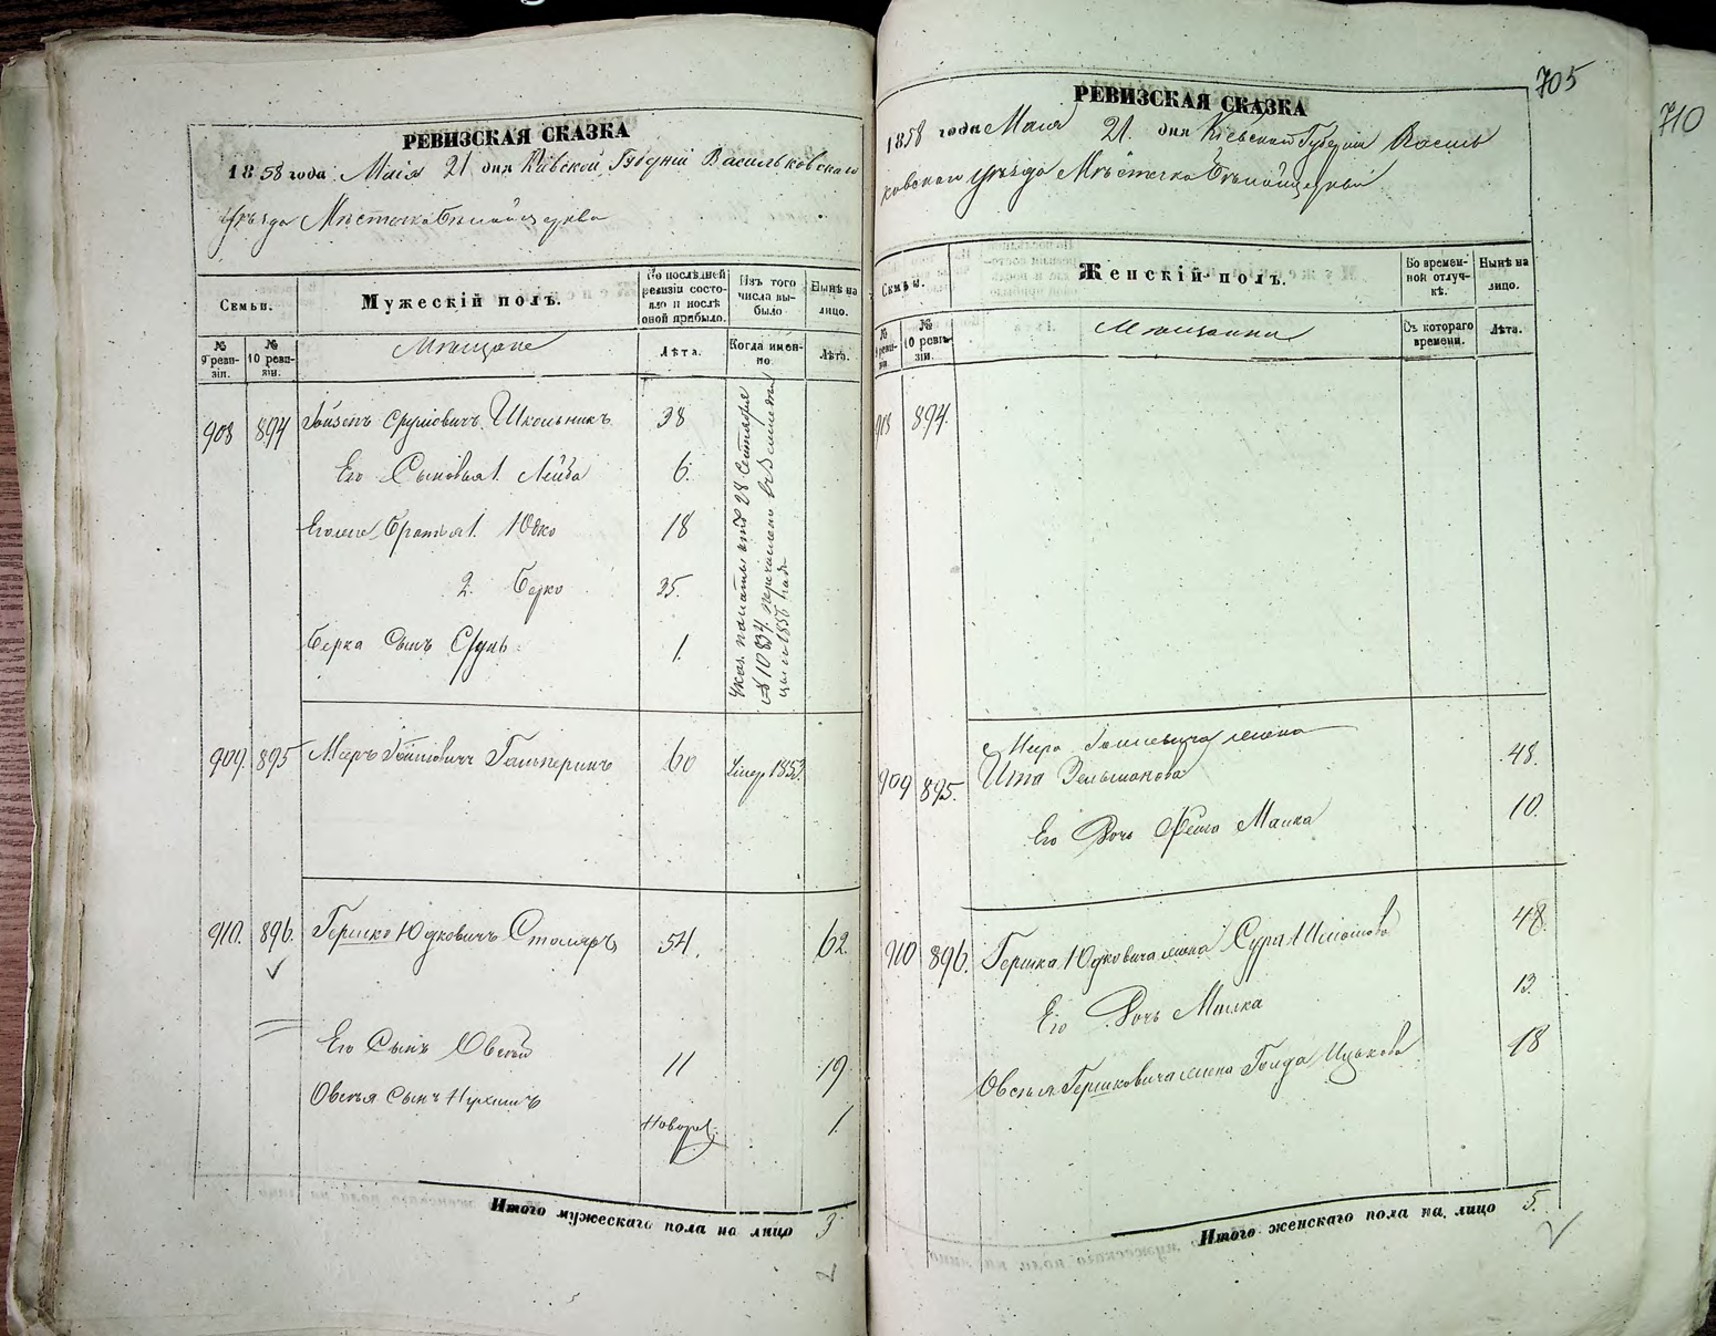 705
710
РЕВИЗСКАЯ СКАЗКА
1858 года Маія 21 дня Кіевской Губерніи Васильковскаго
Уѣзда Мѣстечка Бѣлой церкви
Семьи.
Мужескій полъ.
По послѣдней ревизіи состояло и послѣ оной прибыло.
Изъ того числа выбыло
Нынѣ на лицо.
№ 9 ревизіи.
№ 10 ревизіи.
Мѣщане
Лѣта.
Когда именно.
Лѣта.
908 894 Школьникъ 38
Его Сыновья 1. Лейба 6.
Его же Братья 1. Юдко 18
2. Берко 35.
Берка Сынъ Сруль 1.
Указ. палаты отъ 28 Сентября
№ 10834 перечислено
1856 года
909. 895 Мееръ Гальперинъ 60 Умер. 1853.
910. 896. Гершко Юдковичъ Столяръ 54. 62.
Его Сынъ Овсѣй 11 19
Овсѣя Сынъ Нухимъ Новорож. 1.
Итого мужескаго пола на лицо 3
2
РЕВИЗСКАЯ СКАЗКА
1858 года Маія 21. дня Кіевской Губерніи Василь
ковскаго Уѣзда Мѣстечка Бѣлой церкви
Семьи.
Женскій полъ.
Во временной отлучкѣ.
Нынѣ на лицо.
№ 9 ревизіи
№ 10 ревизіи.
Мѣщанки
Съ котораго времени.
Лѣта.
908 894.
Меера жена
909 895. Ита Зельманова 48.
Его Дочь Фейга Малка 10.
910 896. Гершка Юдковича жена Сура 48.
Его Дочь Малка 13.
Овсѣя Гершковича жена Голда Ицькова 18
Итого женскаго пола на лицо 5.